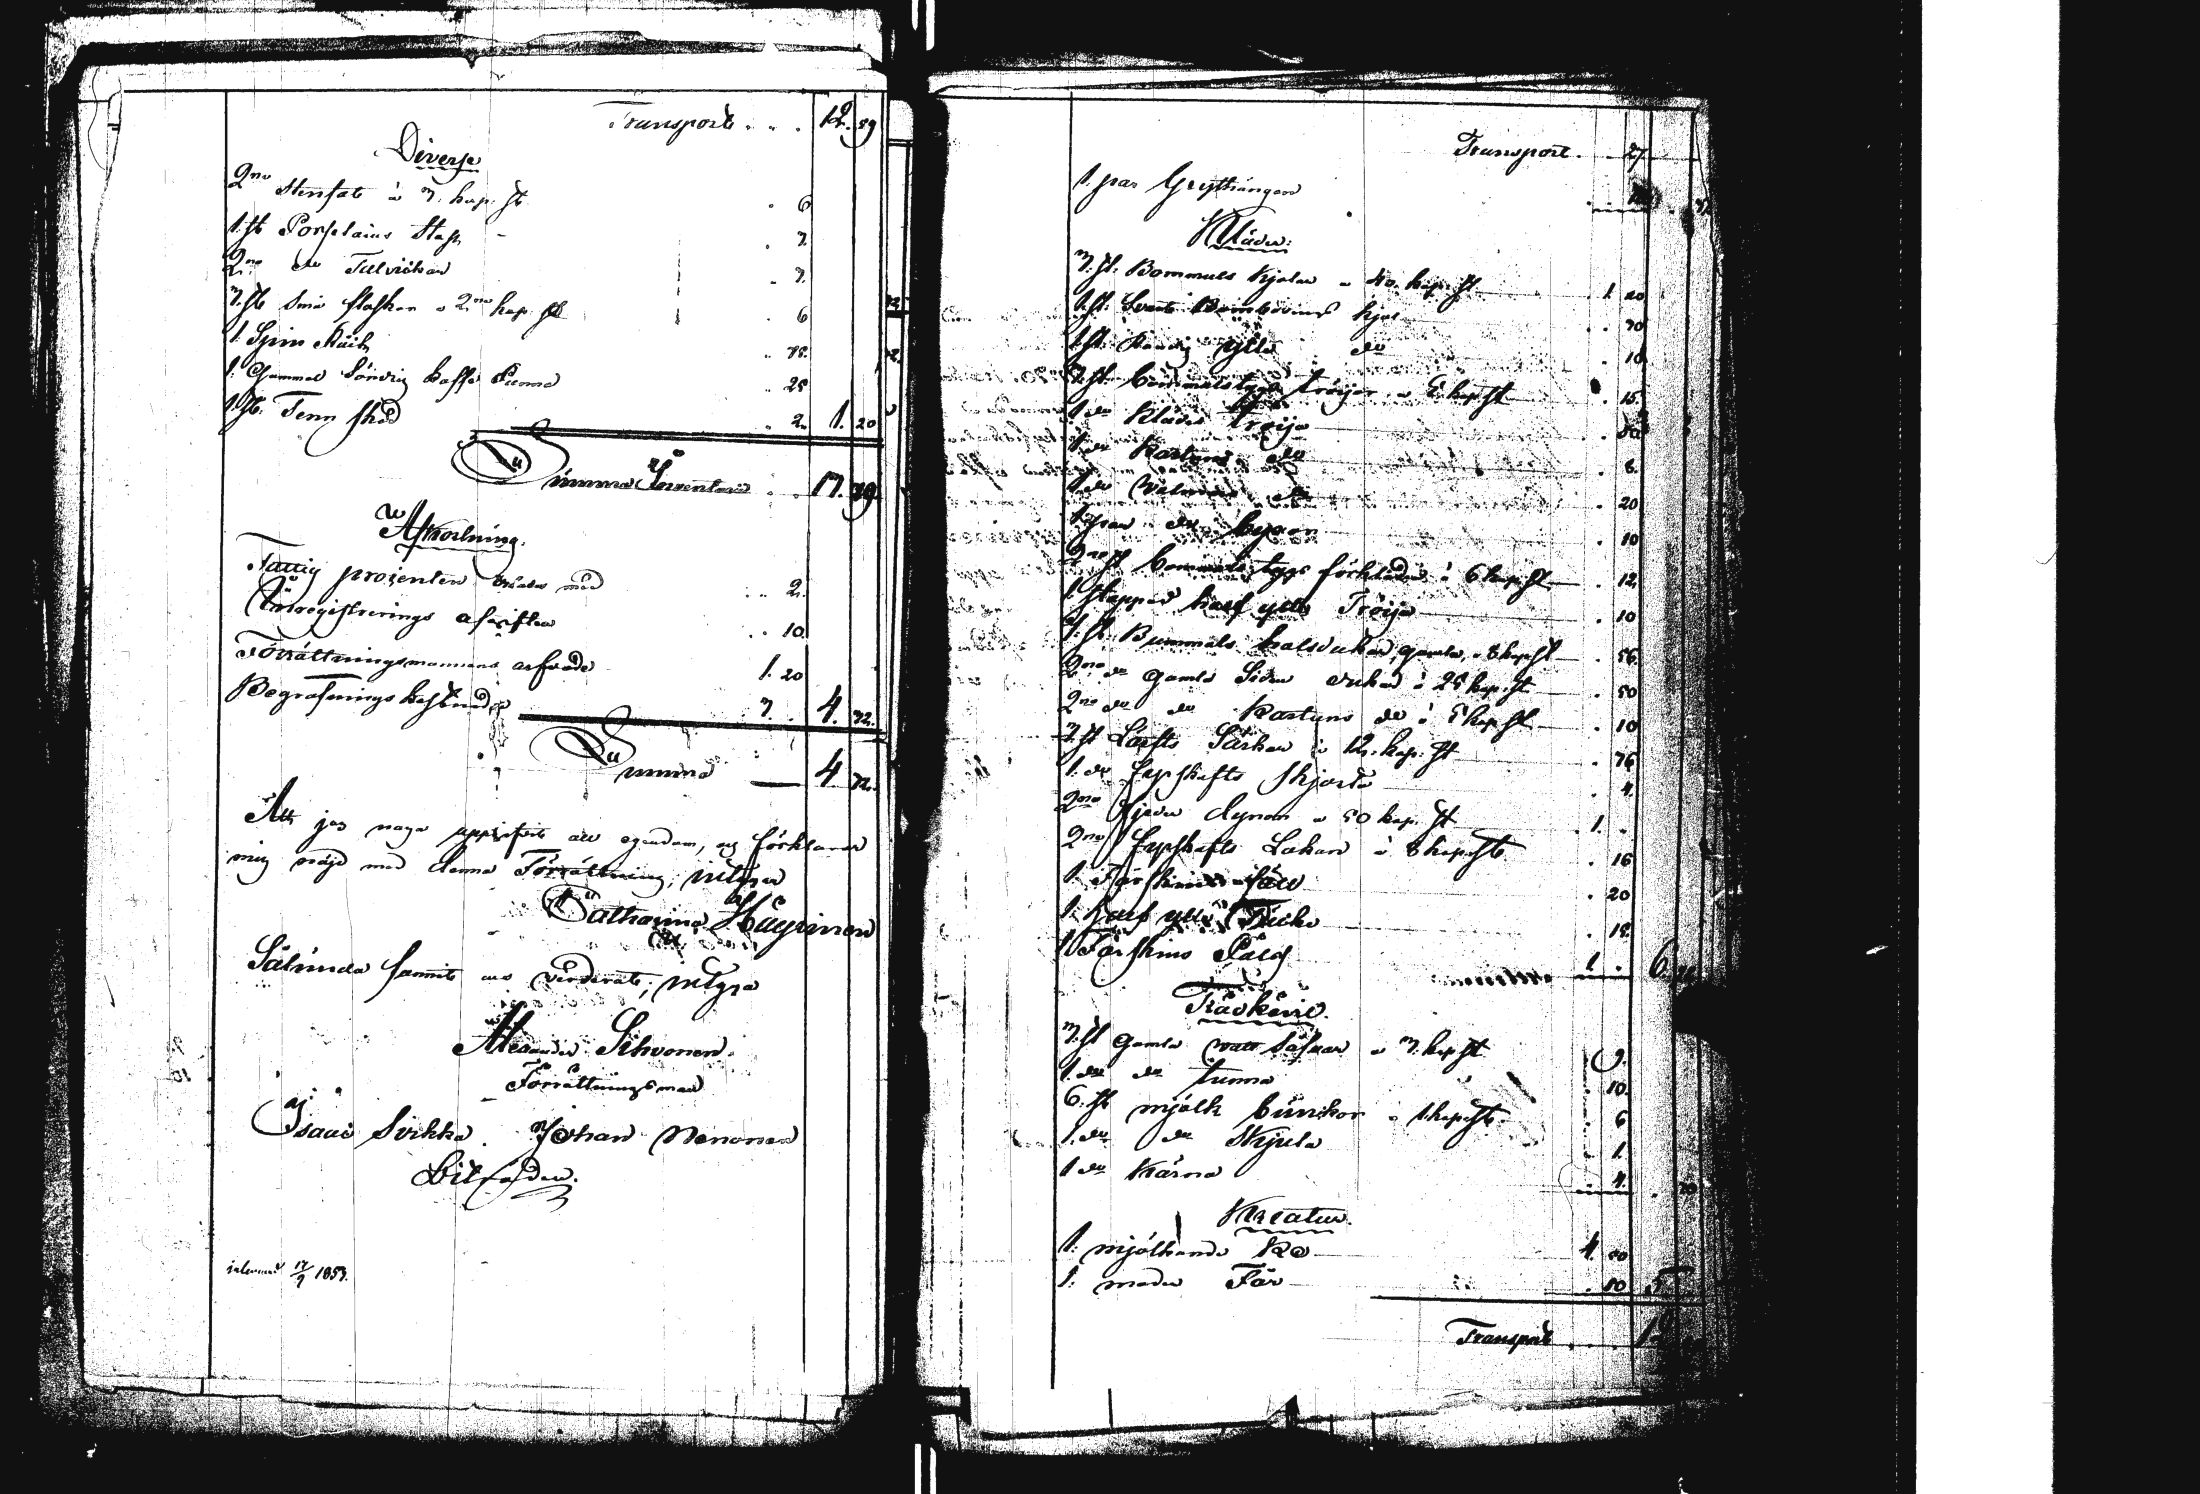 Transport . . . 12. 89
Diverse
2ne Stenfat à 3. kop. st . 6
1. st Porslains Stop . 3.
2ne do Talrickar . 3.
3. st små flaskor à 2ne kop. st . 6
1. Spin Råck . 75.
1. Gammal Söndrig kaffe Panna . 25
1. st. Tenn sked . 2. 1. 20
Summa Inventarii . . 17. 39.
Afkortning.
Fattig procenten med . . 2.
Inregistrerings afgiften . . 10.
Förrättningsmannens arfvode 1. 20
Begrafnings kostnad 3. . 4. 32.
Summa — 4. 32.
Att jag noga uppgifvit all egendom, och förklarar
mig nöjd med denna Förrättning; intygar
Catharina Häyrinen
Sålunda vara värderat; intyga
Alexander Sihvonen.
Förrättningsman
Isaac Sirkka. Johan Nenonen
17/9 1853.
Transport . . 27
1. par Grythängen
Kläder:
3. st. Bommuls Kjolar à 40. kop. st 1. 20
1. st. Svart kjol . . 30
1. st. Randig ylle do . 10.
3. st. Bommulstygs tröijor à 5. kop. st . 15.
1 do Klädes tröija
1. do Kartuns do . 8.
1. do Walmars do . 20
1. par do Byxor . 10
2ne st Bommulstygs förkläden à 6 kop. st . 12.
1. Stoppad half ylle Tröija . 10
7. st. Bummuls halsdukar, gamla, à 8 kop. st . 56.
2ne do gamla Siden dukar à 25 kop. st . 50
2ne do do Kartuns do à 5 kop. st . 10
3. st Lärfts Särkar à 12. kop. st . 36
1. do Fyrskafts Skjorta . 4.
2ne Fjeder dynor à 50 kop. st 1. .
2ne Fyrskafts Lakan à 8 kop. st . 16
1. Fårskins fäll . 20
1. half ylle Täcke . 15.
1 Fårskins Päls 1 . 6.
Trädkäril.
3. st gamla watt såar à 3. kop. st . 9.
1. do do tunna . 10.
6. st mjölk bunkor à 1 kop. st . 6
1. do do Skjula . 1.
1 do Kärna . 4.
Kreatur.
1. mjölkande Ko 4. 50
1. moder Får . 50
Transport . . .